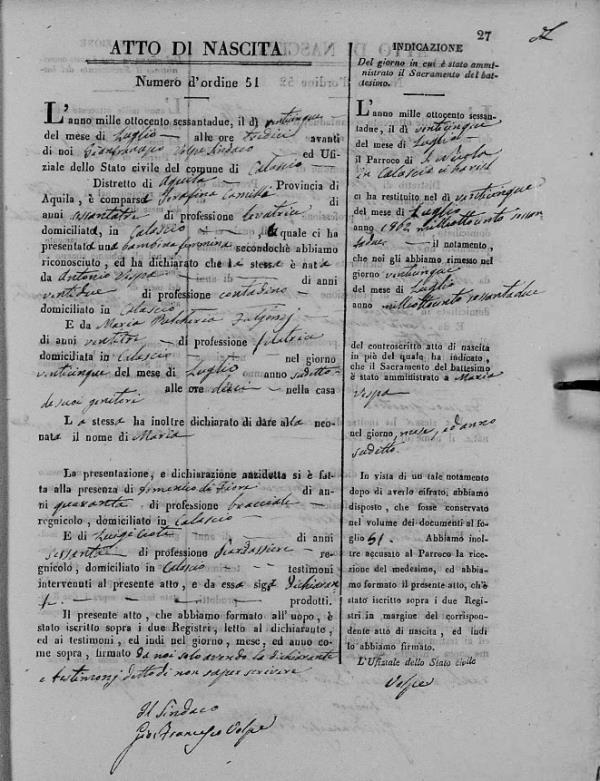 27
ATTO DI NASCITA
Numero d'ordine 51
L'anno mille ottocento sessantadue, il dì venticinque
del mese di Luglio alle ore tredici avanti
di noi Gianfrancesco Volpe Sindaco ed Ufi-
ziale dello Stato civile del comune di Calascio
Distretto di Aquila Provincia di
Aquila, è comparsa Serafina Camilla di
anni sessantatre di professione levatrice
domiciliata, in Calascio quale ci ha
presentato una bambina femmina secondochè abbiamo
riconosciuto, ed ha dichiarato che la stessa è nata
da Antonio Vespa di anni
ventidue di professione contadino
domiciliato in Calascio
E da Maria Pulcheria
di anni ventitre di professione filatrice
domiciliata in Calascio nel giorno
venticinque del mese di Luglio anno sudetto
alle ore dieci nella casa
de suoi genitori
La stessa ha inoltre dichiarato di dare alla neo-
nata il nome di Maria
La presentazione, e dichiarazione anzidetta si è fat-
ta alla presenza di Domenico di Fiore di an-
ni quaranta di professione bracciale
regnicolo, domiciliato in Calascio
E di Luigi di anni
sessanta di professione re-
gnicolo, domiciliato in Calascio testimoni
intervenuti al presente atto, e da essa sigª dichiaran
te prodotti.
Il presente atto, che abbiamo formato all'uopo, è
stato iscritto sopra i due Registri, letto al dichiarante,
ed ai testimoni, ed indi nel giorno, mese, ed anno co-
me sopra, firmato da noi solo avendo la dichiarante
e testimonj detto di non saper scrivere
Il Sindaco
Gio: Francesco Volpe
INDICAZIONE
Del giorno in cui è stato ammi-
nistrato il Sacramento del bat-
tesimo.
L'anno mille ottocento sessan-
tadue, il dì venticinque
del mese di Luglio
il Parroco di S. Nicola
in Calascio
ci ha restituito nel dì venticinque
del mese di Luglio
anno 1862 milleottocento sessan
tadue il notamento,
che noi gli abbiamo rimesso nel
giorno venticinque
del mese di Luglio
anno milleottocento sessantadue
del controscritto atto di nascita
in piè del quale ha indicato,
che il Sacramento del battesimo
è stato amministrato a Maria
Vespa
nel giorno, mese, ed anno
sudetto
In vista di un tale notamento
dopo di averlo cifrato, abbiamo
disposto, che fosse conservato
nel volume dei documenti al fo-
glio 51. Abbiamo inol-
tre accusato al Parroco la rice-
zione del medesimo, ed abbia-
mo formato il presente atto, ch'è
stato iscritto sopra i due Regi-
stri in margine del corrispon-
dente atto di nascita, ed indi
lo abbiamo firmato.
L'Ufiziale dello Stato civile
Volpe